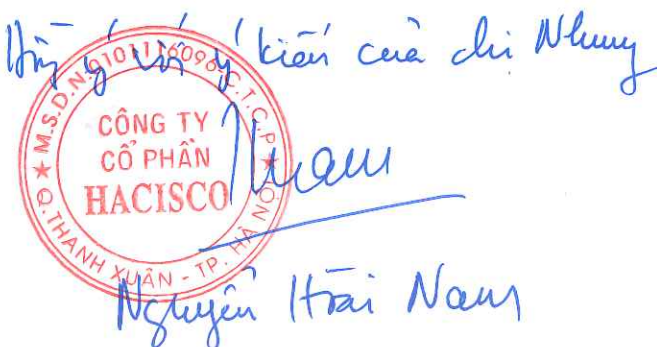 ý với ý kiến của chị Nhung
M.S.D.N:0101116096-C.T.C.P
CÔNG TY
CỔ PHẦN
HACISCO
Q.THANH XUÂN - TP. HÀ NỘI
Nam
Nguyễn Hoài Nam